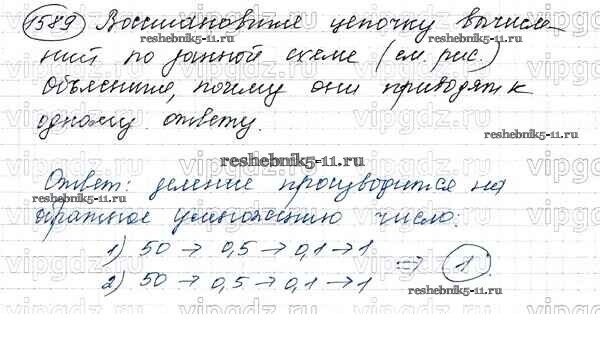 1589 Восстановите цепочку вычисле-
ний по данной схеме (см. рис.)
Объясните, почему они приводят к
одному ответу.
reshebnik5-11.ru
Ответ: деление производится на
кратное умножению число:
1) 50 → 0,5 → 0,1 → 1
2) 50 → 0,5 → 0,1 → 1
⇒ 1
reshebnik5-11.ru
reshebnik5-11.ru
reshebnik5-11.ru
vipgdz.ru